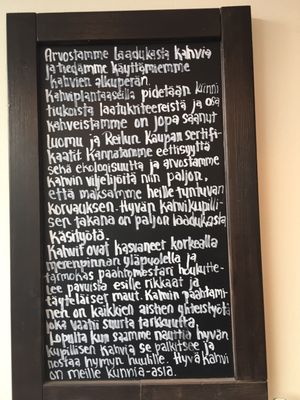 Arvostamme laadukasta kahvia
ja tiedämme käyttämiemme
kahvien alkuperän.
Kahviplantaaseilla pidetään kiinni
tiukoista laatukriteereistä ja osa
kahveistamme on jopa saanut
Luomu ja Reilun Kaupan sertifi-
kaatit. Kannatamme eettisyyttä
sekä ekologisuutta ja arvostamme
kahvin viljelijöitä niin paljon,
että maksamme heille tuntuvan
korvauksen. Hyvän kahvikupilli-
sen takana on paljon laadukasta
käsityötä.
Kahvit ovat kasvaneet korkealla
merenpinnan yläpuolella ja
tarmokas paahtomestari houkutte-
lee pavuista esille rikkaat ja
täyteläiset maut. Kahvin paahtami-
nen on kaikkien aistien yhteistyötä
joka vaatii suurta tarkkuutta.
Lopulta kun saamme nauttia hyvän
kupillisen kahvia se palkitsee ja
nostaa hymyn huulille. Hyvä kahvi
on meille kunnia-asia.